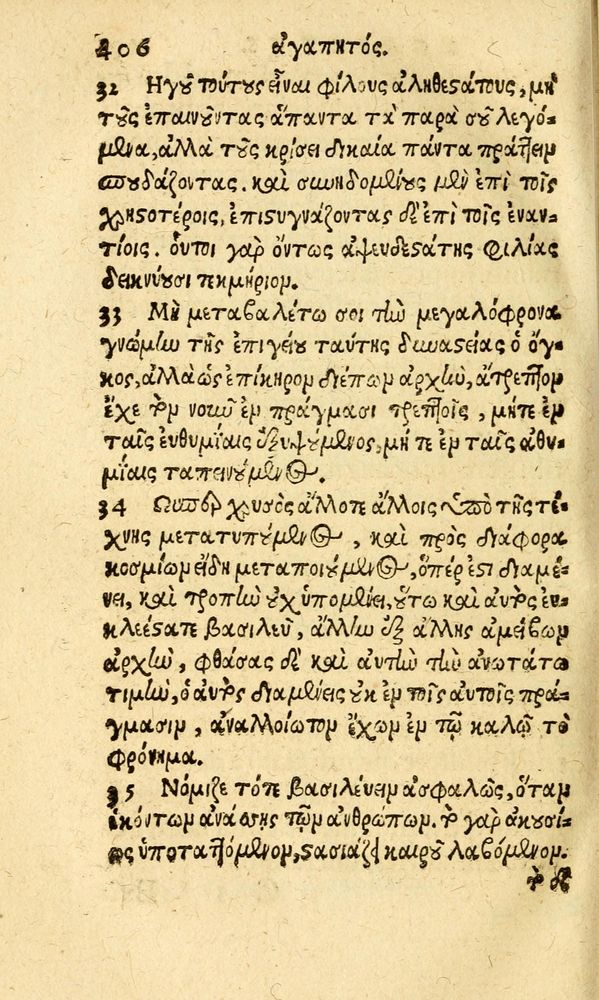 406 ἀγαπητός.
32 Ἡγοῦ τούτους εἶναι φίλους ἀληθεστάτους, μὴ
τοὺς ἐπαινοῦντας ἅπαντα τὰ παρὰ σοῦ λεγό-
μενα, ἀλλὰ τοὺς κρίσει δικαία πάντα πράττειν
σπουδάζοντας. καὶ συνηδομένους μὲν ἐπὶ τοῖς
χρηστοτέροις, ἐπιστυγνάζοντας δὲ ἐπὶ τοῖς ἐναν-
τίοις. οὗτοι γὰρ ὄντως ἀψευδεστάτης φιλίας
δεικνύουσι τεκμήριον.
33 Μὴ μεταβαλέτω σοι τὴν μεγαλόφρονα
γνώμην τῆς ἐπιγείου ταύτης δυναστείας ὁ ὄγ-
κος, ἀλλὰ ὡς ἐπίκηρον διέπων ἀρχὴν, ἄτρεπτον
ἔχε τὸν νοῦν ἐν πράγμασι τρεπτοῖς, μήτε ἐν
ταῖς εὐθυμίαις ἐξυψούμενος, μή τε ἐν ταῖς ἀθυ-
μίαις ταπεινούμενος.
34 Ὥσπερ χρυσὸς ἄλλοτε ἄλλοις ὑπὸ τῆς τέ-
χνης μετατυπούμενος, καὶ πρὸς διάφορα
κοσμίων εἴδη μεταποιούμενος, ὅπερ ἐστὶ διαμέ-
νει, καὶ τροπὴν οὐχ ὑπομένει, οὕτω καὶ αὐτὸς εὐ-
κλεέστατε βασιλεῦ, ἄλλην ἐξ ἄλλης ἀμείβων
ἀρχὴν, φθάσας δὲ καὶ αὐτὴν τὴν ἀνωτάτω
τιμὴν, ὁ αὐτὸς διαμένεις οὐκ ἐν τοῖς αὐτοῖς πρά-
γμασιν, ἀναλλοίωτον ἔχων ἐν τῷ καλῷ τὸ
φρόνημα.
35 Νόμιζε τότε βασιλεύειν ἀσφαλῶς, ὅταν
ἑκόντων ἀνάσσης τῶν ἀνθρώπων. τὸ γὰρ ἀκουσί-
ως ὑποταττόμενον, στασιάζει καιροῦ λαβόμενον.
τὸ δὲ